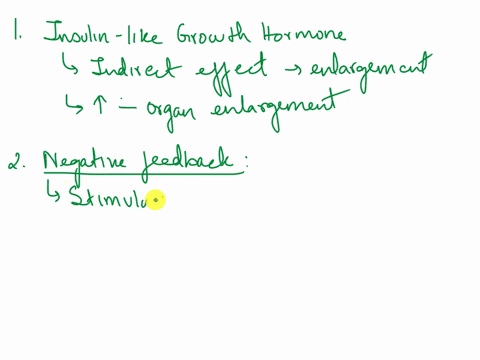 1. Insulin-like Growth Hormone
↳ Indirect effect → enlargement
↳ ↑ – organ enlargement
2. Negative feedback :
↳ Stimula